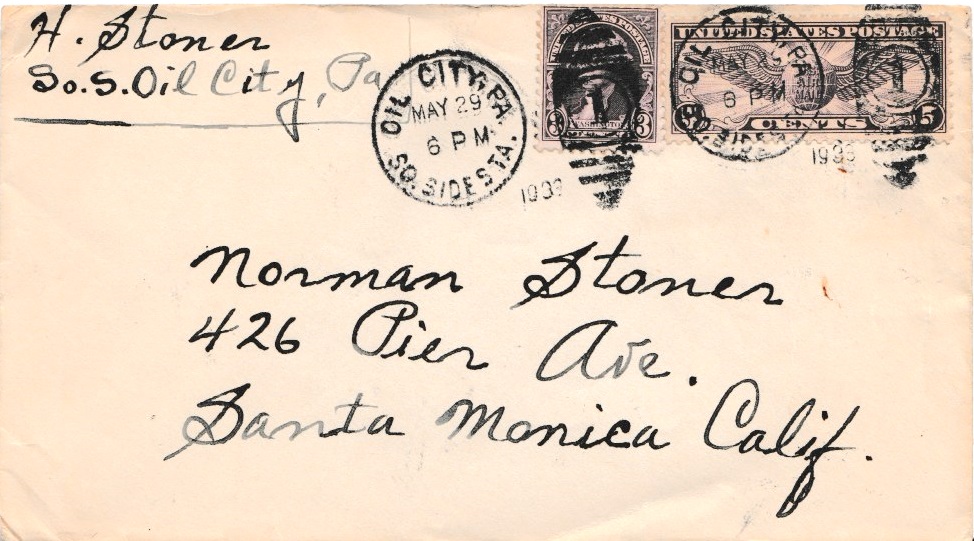 H. Stoner
So. S. Oil City, Pa
OIL CITY, PA.
MAY 29
6 PM
SO. SIDE STA.
1
3 3
UNITED STATES POSTAGE
OIL CITY, PA.
MAY 29
6 PM
SO. SIDE STA.
1
5 5
CENTS
Norman Stoner
426 Pier Ave.
Santa Monica Calif.